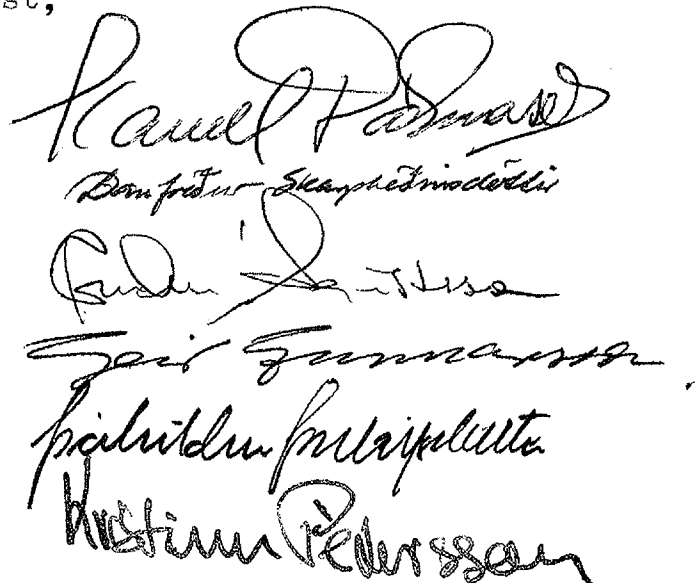 Karvel Pálmason
Danfríður Skarphéðinsdóttir
Guðni Ágústsson
Geir Gunnarsson
Þórhildur Þorleifsdóttir
Kristinn Pétursson